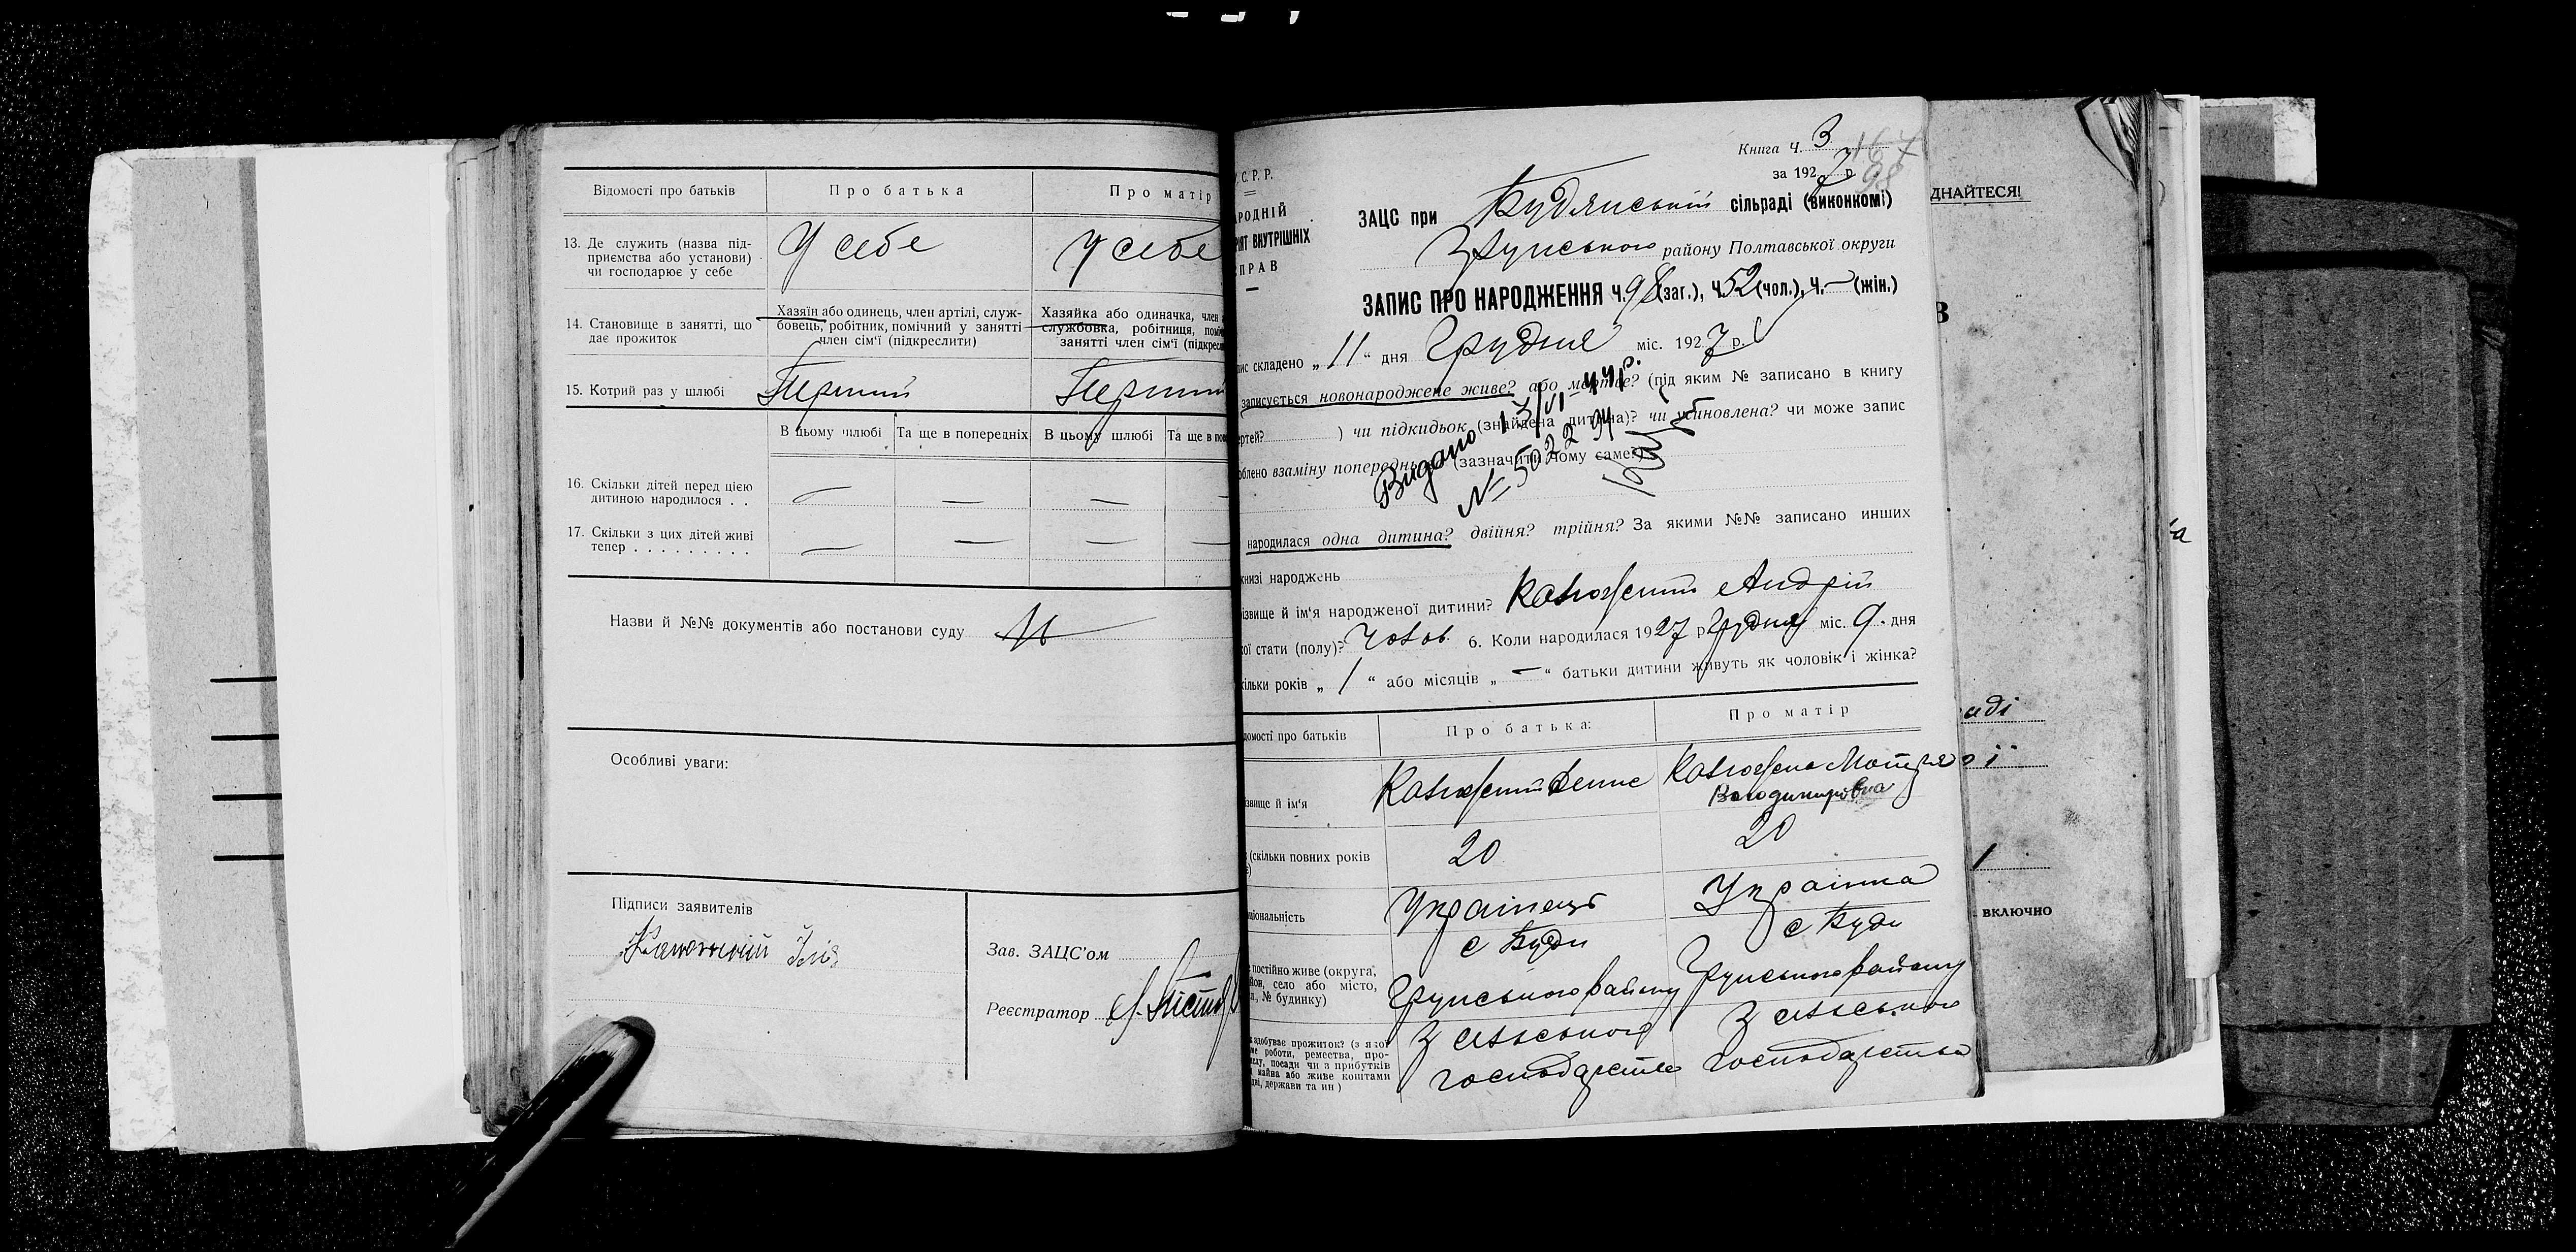 Відомості про батьків
Про батька
Про матір
13. Де служить (назва під-
приємства або установи)
чи господарює у себе
У себе
У себе
14. Становище в занятті, що
дає прожиток
Хазяїн або одинець, член артілі, служ-
бовець, робітник, помічний у занятті
член сім'ї (підкреслити)
Хазяйка або одиначка, член
службовка, робітниця,
занятті член сім'ї
15. Котрий раз у шлюбі
Перший
Перший
В цьому шлюбі
Та ще в попередніх
В цьому шлюбі
Та ще в
16. Скільки дітей перед цією
дитиною народилося . .
— — — —
17. Скільки з цих дітей живі
тепер . . . . . . . . .
— — — —
Назви й №№ документів або постанови суду
Особливі уваги:
Підписи заявителів
Зав. ЗАЦС'ом
Реєстратор
Книга Ч. 3
167
98
за 1927 р.
С. Р. Р.
ВНУТРІШНІХ
ПРАВ
ЗАЦС при Будянській сільраді (виконкомі)
Грунського району Полтавської округи
ЗАПИС ПРО НАРОДЖЕННЯ Ч. 98 (заг.), Ч. 52 (чол.), Ч. — (жін.)
складено „11“ дня Грудня міс. 1927 р.
записується новонароджене живе? або мертве? (під яким № записано в книгу
) чи підкидьок (знайдена дитина)? чи усиновлена? чи може запис
взаміну попереднього (зазначити чому саме?)
Видано 13/VI-44р.
№ 502294
народилася одна дитина? двійня? трійня? За якими №№ записано инших
книзі народжень
ім'я народженої дитини? Калюжний Андрій
стати (полу)? Чолов. 6. Коли народилася 1927 р. Грудня міс. 9 дня
років „ 1 “ або місяців „ — “ батьки дитини живуть як чоловік і жінка?
про батьків
Про батька:
Про матір
й ім'я
Калюжний Денис
Калюжна Мотря
Володимировна
(скільки повних років
20
20
Українець
Українка
постійно живе (округа,
село або місто,
№ будинку)
с Буди
Грунського району
с Буди
Грунського району
здобуває прожиток? (з якої
роботи, ремества, про-
посади чи з прибутків
майна або живе коштами
держави та ин.)
З сільського
господарства
З сільського
господарства
ДНАЙТЕСЯ!
В
аді
ої
1
включно